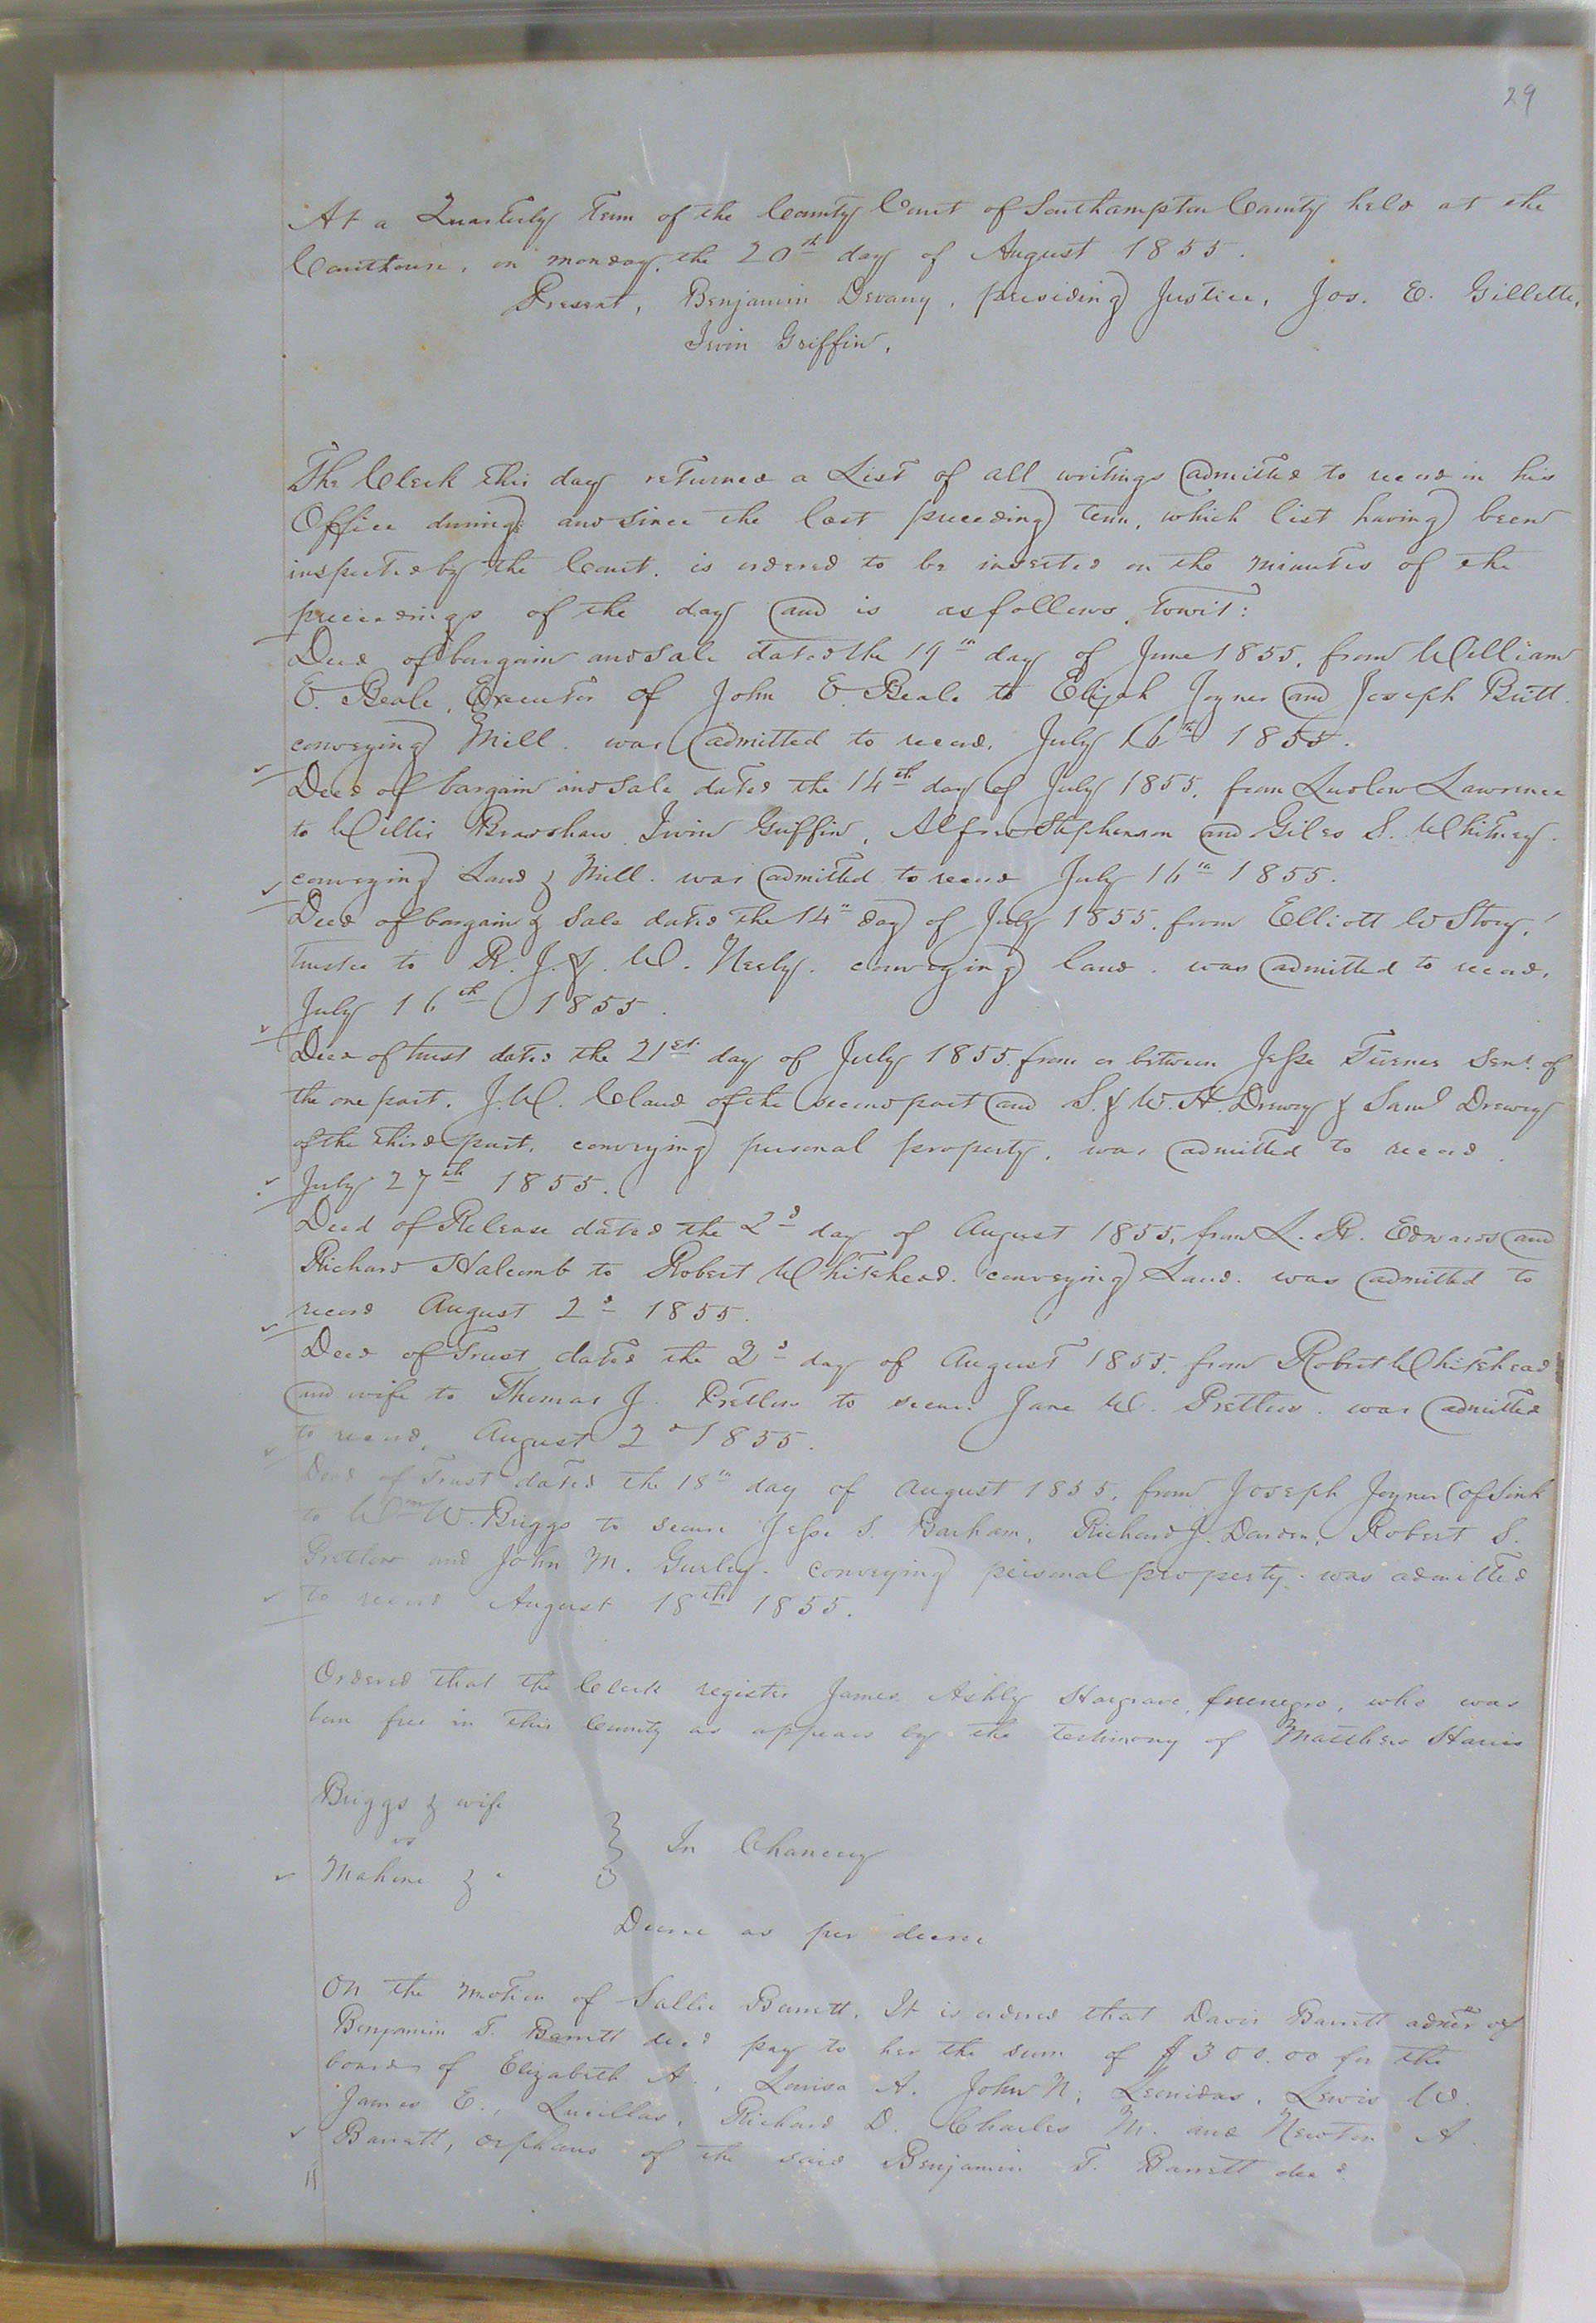 29
At a Quarterly Term of the County Court of Southampton County held at the
Courthouse, on monday, the 20th day of August 1855.
Present, Benjamin Devany, presiding Justice, Jos. E. Gillette,
Irvin Griffin,
The Clerk this day returned a List of all writings admitted to record in his
Office during and since the last preceeding term, which list having been
inspected by the Court, is ordered to be inserted on the minutes of the
proceedings of the day and is as follows, towit:
Deed of bargain and sale dated the 19th day of June 1855, from William
E. Beale, Executor of John E. Beale to Elijah Joyner and Joseph Britt
conveying Mill. was admitted to record, July 16th 1855.
Deed of bargain and sale dated the 14th day of July 1855, from Ludlow Lawrence
to Willis Bradshaw, Irvin Griffin, Alfred Stephenson and Giles S. Whitney.
conveying Land & Mill. was admitted to record July 16th 1855.
Deed of bargain & Sale dated the 14th day of July 1855. from Elliott W Story,
trustee to R. J. & J. W. Neely. conveying land. was admitted to record,
July 16th 1855.
Deed of trust dated the 21st day of July 1855 from or between Jesse Turner Senr. of
the one part, J. W. Claud of the second part and S. & W. H. Drewry & Saml Drewry
of the third part, conveying personal property, was admitted to record.
July 27th 1855.
Deed of Release dated the 2d day of August 1855, from L. R. Edwards and
Richard Halcomb to Robert Whitehead. conveying Land. was admitted to
record August 2d 1855.
Deed of Trust dated the 2d day of August 1855. from Robert Whitehead
and wife to Thomas J. Pretlow to secure Jane W. Pretlow. was admitted
to record, August 2d 1855.
Deed of Trust dated the 18th day of August 1855, from Joseph Joyner (of Sink
to Wm W. Briggs to secure Jesse S. Barham, Richard J. Darden, Robert S.
Pretlow and John M. Gurley. conveying personal property. was admitted
to record August 18th 1855.
Ordered that the Clerk register James Ashly Hargrave, free negro, who was
born free in this County as appears by the testimony of Matthew Harris
Briggs & wife
vs
In Chancery
Mahone &c
Decree as per decree
On the motion of Sallie Barrett. It is ordered that Davis Barrett admr of
Benjamin T. Barrett decd pay to her the sum of $300.00 for the
board of Elizabeth A., Louisa A. John N., Leonidas, Lewis W.
James E., Lucillas, Richard D. Charles M. and Newton A.
Barrett, orphans of the said Benjamin T. Barrett decd.